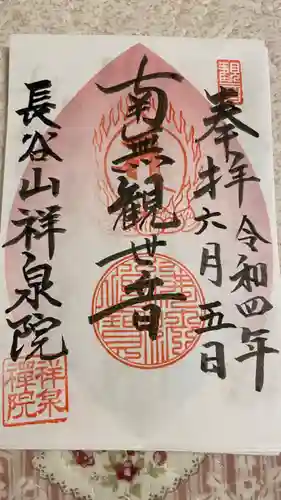 奉拝
令和四年
六月五日
南無観世音
長谷山祥泉院
祥泉
禅院